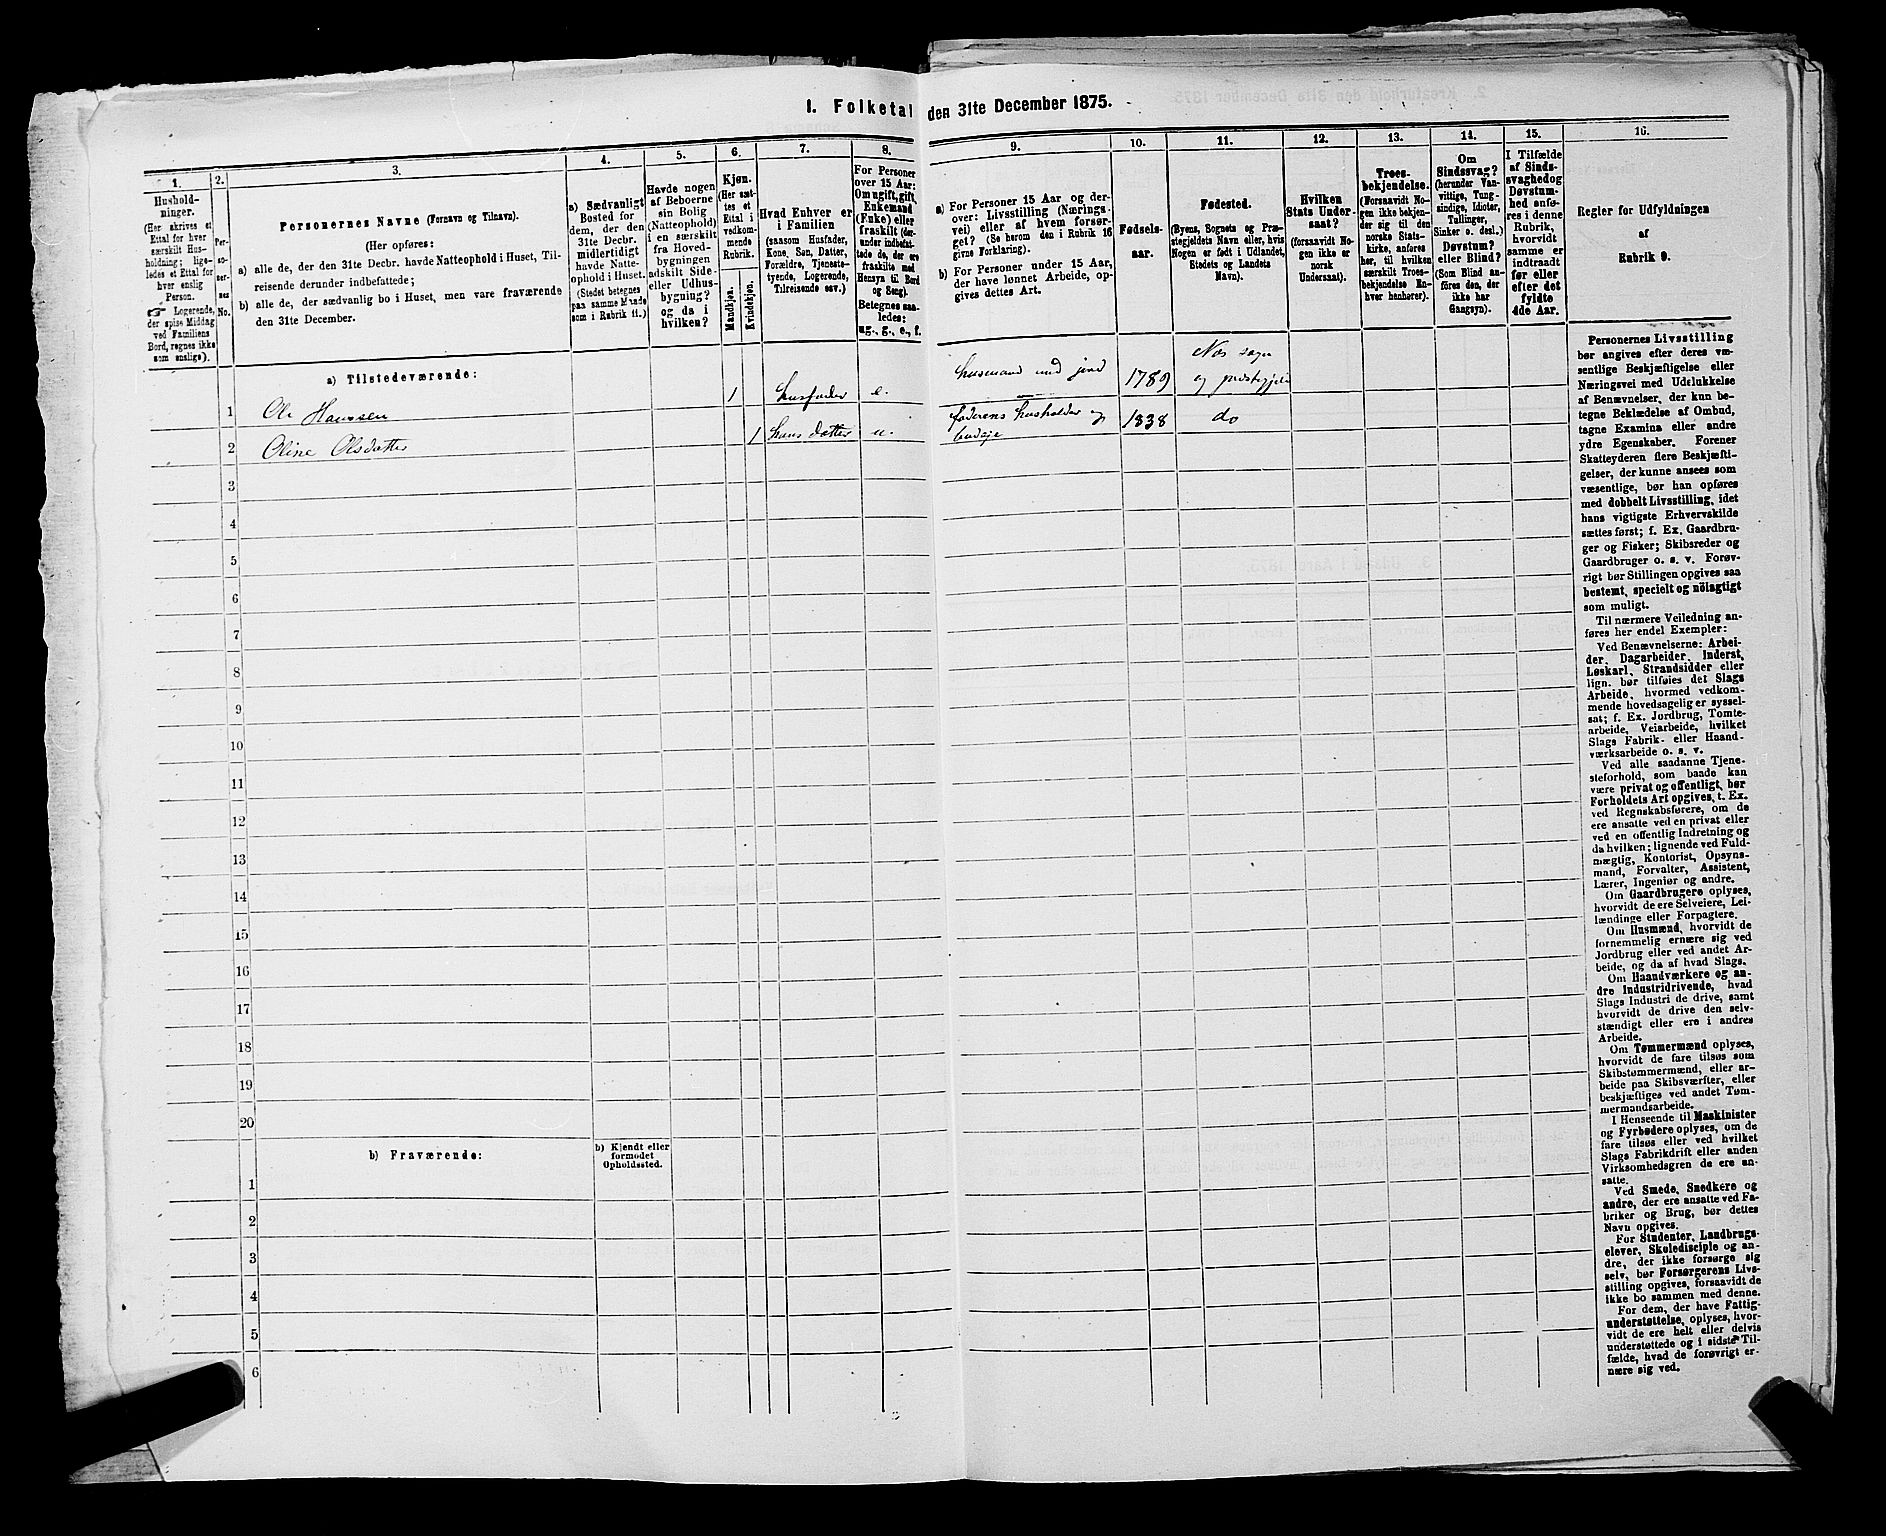 1. Folketal den 31te December 1875.
1.
2.
3.
4.
5.
6.
7.
8.
Hushold-
ninger.
(Her skrives et
Ettal for hver
særskilt Hus-
holdning; lige-
ledes et Ettal for
hver enslig
Person.
Logerende,
der spise Middag
ved Familiens
Bord, regnes ikke
som enslige).
Per-
so-
ner-
nes
No.
Personernes Navne (Fornavn og Tilnavn).
(Her opføres:
a) alle de, der den 31te Decbr. havde Natteophold i Huset, Til-
reisende derunder indbefattede;
b) alle de, der sædvanlig bo i Huset, men vare fraværende
den 31te December.
a) Sædvanligt
Bosted for
dem, der den
31te Decbr.
midlertidigt
havde Natte-
ophold i Huset.
(Stedet betegnes
paa samme Maade
som i Rubrik 11.)
Havde nogen
af Beboerne
sin Bolig
(Natteophold)
i en særskilt
fra Hoved-
bygningen
adskilt Side-
eller Udhus-
bygning?
og da i
hvilken?
Kjøn.
(Her sæt-
tes et
Ettal i
vedkom-
mende
Rubrik.
Mandkjøn.
Kvindekjøn.
Hvad Enhver er
i Familien
(saasom Husfader,
Kone, Søn, Datter,
Forældre, Tjeneste-
tyende, Logerende,
Tilreisende osv.)
For Personer
over 15 Aar:
Om ugift, gift,
Enkemand
(Enke) eller
fraskilt (der-
under indbefat-
tede de, der ere
fraskilte med
Hensyn til Bord
og Seng).
Betegnes saa-
ledes:
ug., g., e., f.
a) Tilstedeværende:
1 Ole Hanssen 1 husfader e.
2 Oline Olsdatter 1 hans datter u.
3
4
5
6
7
8
9
10
11
12
13
14
15
16
17
18
19
20
b) Fraværende:
b) Kjendt eller
formodet
Opholdssted.
1
2
3
4
5
6
9.
10.
11.
12.
13.
14.
15.
16.
a) For Personer 15 Aar og der-
over: Livsstilling (Nærings-
vei) eller af hvem forsør-
get? (Se herom den i Rubrik 16
givne Forklaring).
b) For Personer under 15 Aar,
der have lønnet Arbeide, op-
gives dettes Art.
Fødsels-
aar.
Fødested.
(Byens, Sognets og Præ-
stegjeldets Navn eller, hvis
Nogen er født i Udlandet,
Stedets og Landets
Navn).
Hvilken
Stats Under-
saat?
(forsaavidt No-
gen ikke er
norsk
Undersaat).
Troes-
bekjendelse.
(Forsaavidt No-
gen ikke bekjen-
der sig til den
norske Stats-
kirke, anføres
her, til hvilken
særskilt Troes-
bekjendelse En-
hver henhører).
Om
Sindssvag?
(herunder Van-
vittige, Tung-
sindige, Idioter,
Tullinger,
Sinker o. desl.)
Døvstum?
eller Blind?
(Som Blind an-
føres den, der
ikke har
Gangsyn).
I Tilfælde
af Sinds-
svaghed og
Døvstum-
hed anfø-
res i denne
Rubrik,
hvorvidt
samme er
indtraadt
før eller
efter det
fyldte
4de Aar.
Regler for Udfyldningen
af
Rubrik 9.
husmand med jord 1789 Nes sogn
og præstegjeld
faderens husholder og 1838 do
budeje
Personernes Livsstilling
bør angives efter deres væ-
sentlige Beskjæftigelse eller
Næringsvei med Udelukkelse
af Benævnelser, der kun be-
tegne Beklædelse af Ombud,
tagne Examina eller andre
ydre Egenskaber. Forener
Skatteyderen flere Beskjæfti-
gelser, der kunne ansees som
væsentlige, bør han opføres
med dobbelt Livsstilling, idet
hans vigtigste Erhvervskilde
sættes først; f. Ex. Gaardbru-
ger og Fisker; Skibsreder og
Gaardbruger o. s. v. Forøv-
rigt bør Stillingen opgives saa
bestemt, specielt og nöiagtigt
som muligt.
Til nærmere Veiledning an-
føres her endel Exempler:
Ved Benævnelserne: Arbei-
der, Dagarbeider, Inderst,
Løskarl, Strandsidder eller
lign. bør tilføies det Slags
Arbeide, hvormed vedkom-
mende hovedsagelig er syssel-
sat; f. Ex. Jordbrug, Tomte-
arbeide, Veiarbeide, hvilket
Slags Fabrik- eller Haand-
værksarbeide o. s. v.
Ved alle saadanne Tjene-
steforhold, som baade kan
være privat og offentligt, bør
Forholdets Art opgives, t. Ex.
ved Regnskabsførere, om de
ere ansatte ved en privat eller
ved en offentlig Indretning og
da hvilken; lignende ved Fuld-
mægtig, Kontorist, Opsyns-
mand, Forvalter, Assistent,
Lærer, Ingeniør og andre.
Om Gaardbrugere oplyses,
hvorvidt de ere Selveiere, Lei-
lændinge eller Forpagtere.
Om Husmænd, hvorvidt de
fornemmelig ernære sig ved
Jordbrug eller ved andet Ar-
beide, og da af hvad Slags.
Om Haandværkere og an-
dre Industridrivende, hvad
Slags Industri de drive, samt
hvorvidt de drive den selv-
stændigt eller ere i andres
Arbeide.
Om Tømmermænd oplyses,
hvorvidt de fare tilsøs som
Skibstømmermænd, eller ar-
beide paa Skibsværfter, eller
beskjæftiges ved andet Tøm-
mermandsarbeide.
I Henseende til Maskinister
og Fyrbødere oplyses, om de
fare tilsøs eller ved hvilket
Slags Fabrikdrift eller anden
Virksomhedsgren de ere an-
satte.
Ved Smede, Snedkere og
andre, der ere ansatte ved Fa-
briker og Brug, bør dettes
Navn opgives.
For Studenter, Landbrugs-
elever, Skoledisciple og an-
dre, der ikke forsørge sig
selv, bør Forsørgerens Livs-
stilling opgives, forsaavidt de
ikke bo sammen med denne.
For dem, der have Fattig-
understøttelse, oplyses, hvor-
vidt de ere helt eller delvis
understøttede og i sidste Til-
fælde, hvad de forøvrigt er-
nære sig ved.